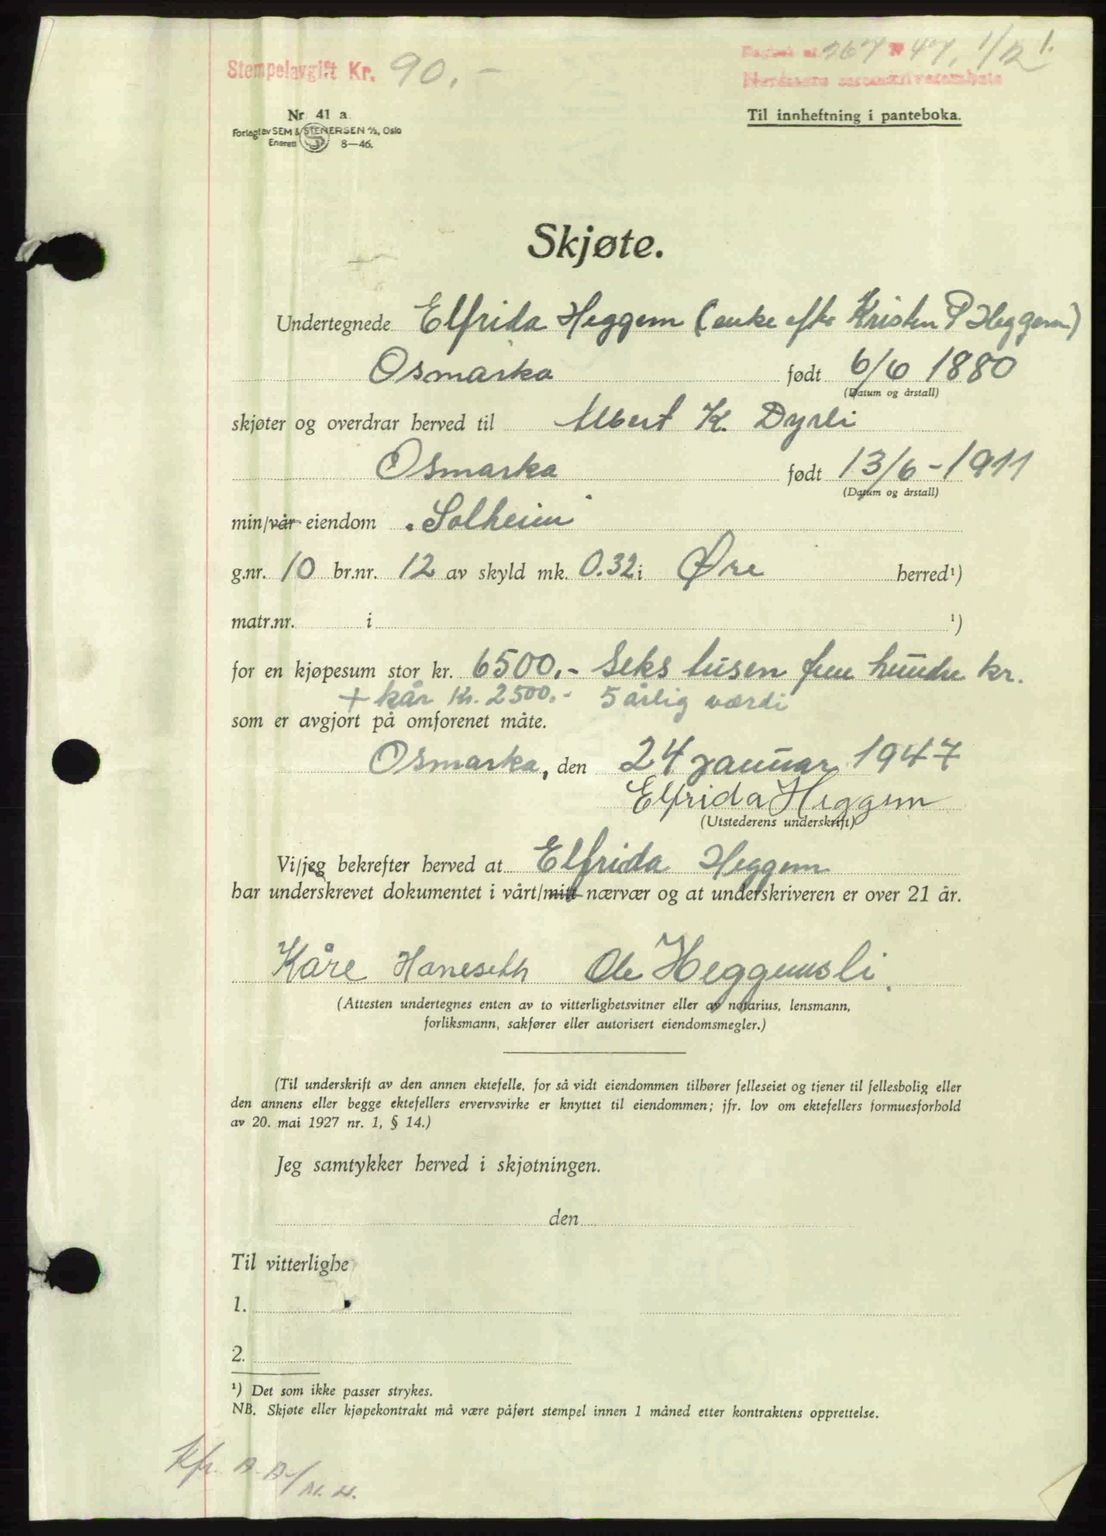 Stempelavgift Kr. 90.-
Dagbok nr 267 19 47. 1/2 1.
Nordmøre sorenskriverembete
Nr. 41 a
Forlag av SEM & STENERSEN A/S, Oslo
Enerett 8—46.
Til innheftning i panteboka.
Skjøte.
Undertegnede Elfrida Heggem (enke efter Kristen P Heggem)
Osmarka født 6/6 1880
(Datum og årstall)
skjøter og overdrar herved til Albert K. Dyrli
Osmarka født 13/6-1911
(Datum og årstall)
min/vår eiendom "Solheim"
g.nr. 10 br.nr. 12 av skyld mk. 0.32 i Øre herred¹)
matr.nr. i ¹)
for en kjøpesum stor kr. 6500.- Seks tusen fem hundre kr.
+ kår Kr. 2500.- 5 årlig værdi
som er avgjort på omforenet måte.
Osmarka, den 24 januar 1947
Elfrida Heggem
(Utstederens underskrift)
Vi/jeg bekrefter herved at Elfrida Heggem
har underskrevet dokumentet i vårt/mitt nærvær og at underskriveren er over 21 år.
Kåre Haneseth Ole Heggemsli.
(Attesten undertegnes enten av to vitterlighetsvitner eller av notarius, lensmann,
forliksmann, sakfører eller autorisert eiendomsmegler.)
(Til underskrift av den annen ektefelle, for så vidt eiendommen tilhører felleseiet og tjener til fellesbolig eller
den annens eller begge ektefellers ervervsvirke er knyttet til eiendommen; jfr. lov om ektefellers formuesforhold
av 20. mai 1927 nr. 1, § 14.)
Jeg samtykker herved i skjøtningen.
den
Til vitterlighet
1.
2.
¹) Det som ikke passer strykes.
NB. Skjøte eller kjøpekontrakt må være påført stempel innen 1 måned etter kontraktens opprettelse.